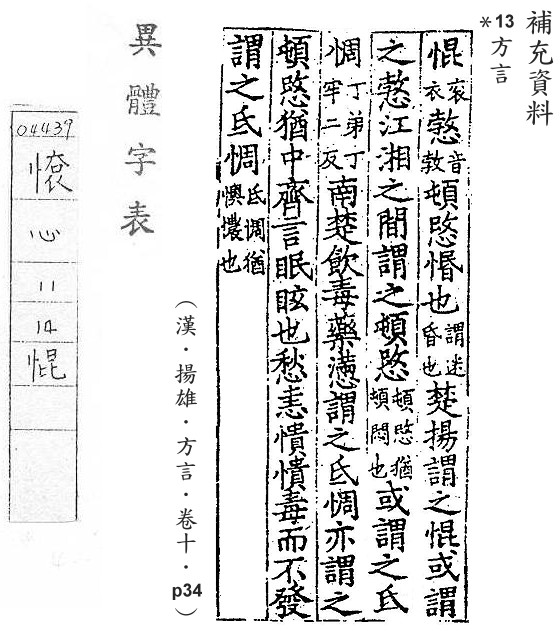 補充資料
*13 方言
惃衮衣憝音敦頓愍惽也謂迷昏也楚揚謂之惃或謂
之憝江湘之間謂之頓愍頓愍猶頓悶也或謂之氐
惆丁弟丁牢二反南楚飲毒藥懣謂之氐惆亦謂之
頓愍猶中齊言眠眩也愁恚憒憒毒而不發
謂之氐惆氐惆猶懊憹也
(漢・揚雄・方言・卷十・p34)
異體字表
04439
心
11
14
惃